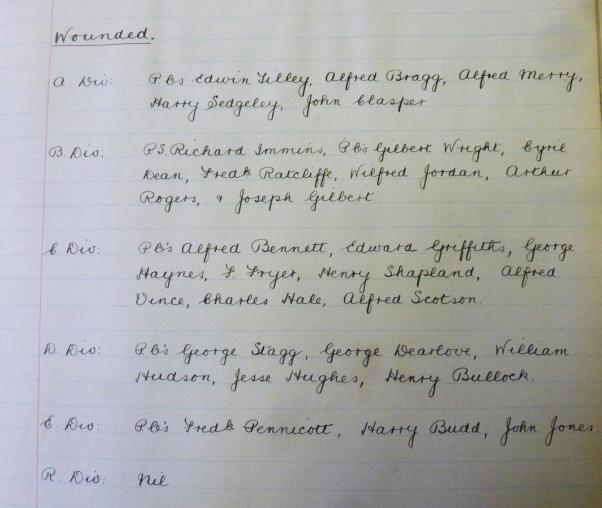 Wounded.
A. Div: PCs Edwin Tilley, Alfred Bragg, Alfred Merry,
Harry Sedgeley, John Clasper
B. Div: PS. Richard Immins, PC's Gilbert Wright, Cyril
Dean, Fredk Ratcliffe, Wilfred Jordan, Arthur
Rogers, & Joseph Gilbert
C. Div: PC's Alfred Bennett, Edward Griffiths, George
Haynes, F. Fryer, Henry Shapland, Alfred
Vince, Charles Hale, Alfred Scotson.
D. Div: PC's George Stagg, George Dearlove, William
Hudson, Jesse Hughes, Henry Bullock.
E. Div: PC's Fredk Pennicott, Harry Budd, John Jones.
R. Div: Nil